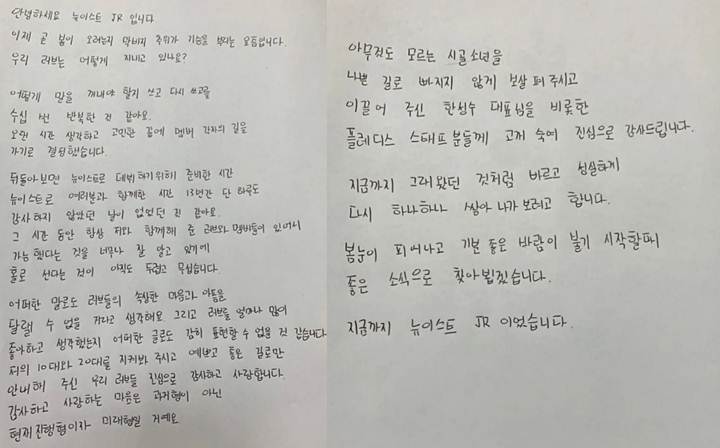 안녕하세요 뉴이스트 JR 입니다
이제 곧 봄이 오려는지 막바지 추위가 기승을 부리는 요즘입니다.
우리 러브는 어떻게 지내고 있나요?
어떻게 말을 꺼내야 할지 쓰고 다시 쓰고를
수십 번 반복한 것 같아요.
오랜 시간 생각하고 고민한 끝에 멤버 각자의 길을
가기로 결정했습니다.
뒤돌아보면 뉴이스트로 데뷔하기위해 준비한 시간
뉴이스트로 여러분과 함께한 시간 13년간 단 하루도
감사하지 않았던 날이 없었던 것 같아요.
그 시간 동안 항상 저와 함께해 준 러브와 멤버들이 있어서
가능했다는 것을 너무나 잘 알고 있기에
홀로 선다는 것이 아직도 두렵고 무섭습니다
어떠한 말로도 러브들의 속상한 마음과 아픔을
달랠 수 없을 거라고 생각해요 그리고 러브를 얼마나 많이
좋아하고 생각했는지 어떠한 글로도 감히 표현할 수 없을 것 같습니다
저의 10대와 20대를 지켜봐 주시고 예쁘고 좋은 길로만
안내해 주신 우리 러브들 진심으로 감사하고 사랑합니다.
감사하고 사랑하는 마음은 과거형이 아닌
현재 진행형이자 미래형일 거예요
아무것도 모르는 시골소년을
나쁜 길로 빠지지 않게 보살펴 주시고
이끌어 주신 한성수 대표님을 비롯한
플레디스 스태프 분들께 고개 숙여 진심으로 감사드립니다.
지금까지 그래 왔던 것처럼 바르고 성실하게
다시 하나하나 쌓아 나가 보려고 합니다.
봄눈이 피어나고 기분 좋은 바람이 불기 시작할때
좋은 소식으로 찾아뵙겠습니다.
지금까지 뉴이스트 JR 이었습니다.